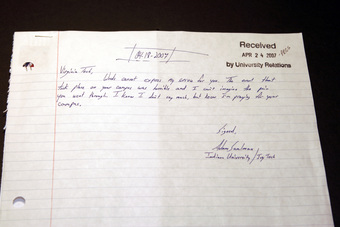 04-18-2007
Received
APR 24 2007
by University Relations
Virginia Tech,
Words cannot express my sorrow for you. The event that
took place on your campus was horrible and I can't imagine the pain
you went through. I know I don't say much, but know I'm praying for your
campus.
Signed,
Indiana University / Ivy Tech